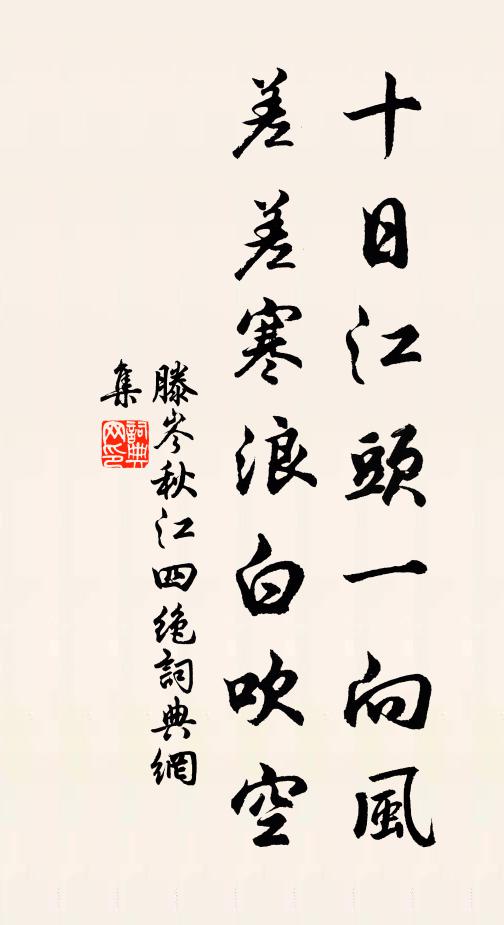 十日江頭一向風
差差寒浪白吹空
滕岑秋江四絶詞典網
集
詞典
网印